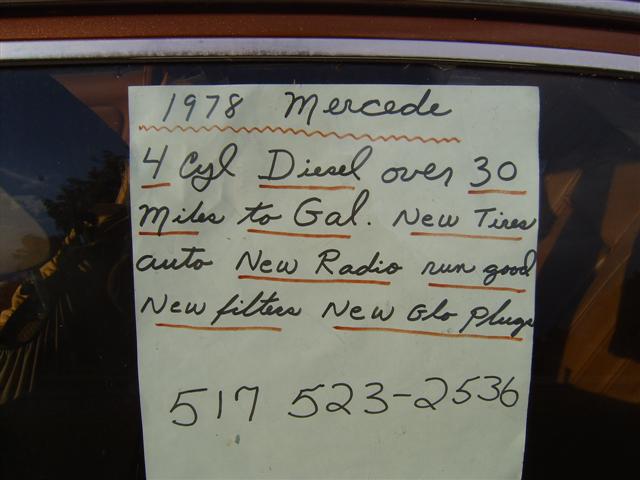 1978 Mercede
4 Cyl Diesel over 30
Miles to Gal. New Tires
auto New Radio run good
New filters New Glo plugs
517 523-2536